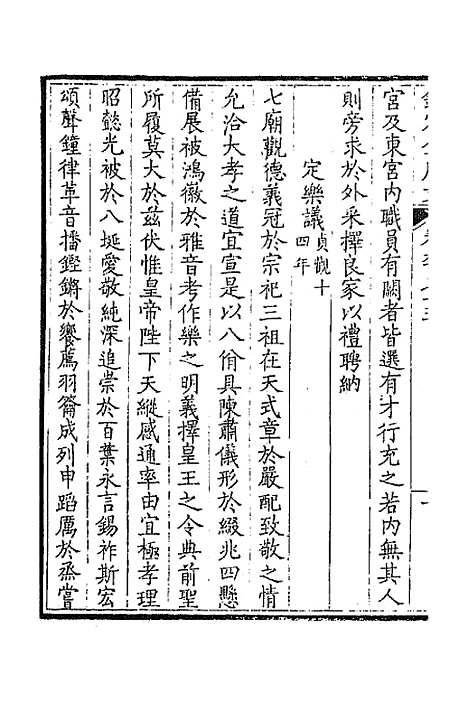 宮及東宮內職員有闕者皆選有才行充之若內無其人
則旁求於外采擇良家以禮聘納
定樂議貞觀十四年
七廟觀德義冠於宗祀三祖在天式章於嚴配致敬之情
允洽大孝之道宜宣是以八佾具陳肅儀形於綴兆四懸
備展被鴻徽於雅音考作樂之明義擇皇王之令典前聖
所履莫大於茲伏惟皇帝陛下天縱感通率由宜極孝理
昭懿光被於八埏愛敬純深追崇於百葉永言錫祚斯宏
頌聲鐘律革音播鏗鏘於饗薦羽籥成列申蹈厲於烝嘗